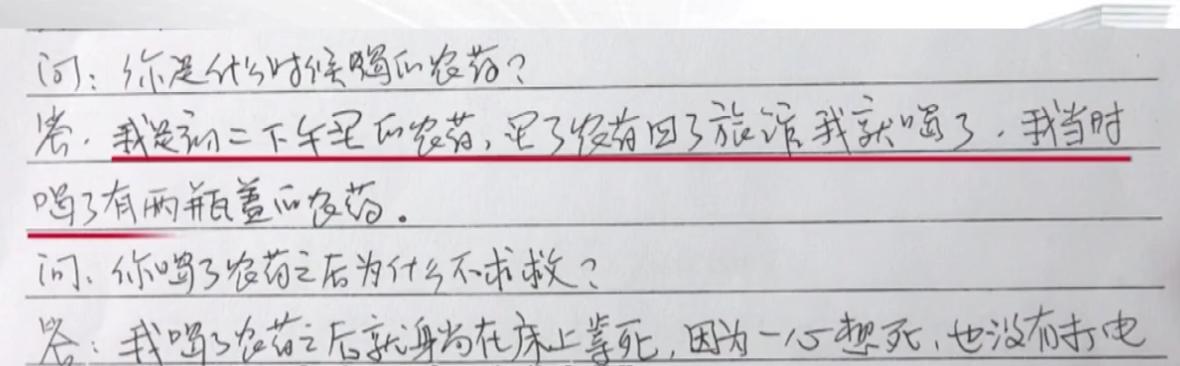 问：你是什么时候喝的农药？
答：我是初二下午买的农药，买了农药回了旅馆我就喝了．我当时
喝了有两瓶盖的农药。
问、你喝了农药之后为什么不求救？
答：我喝了农药之后就身躺在床上等死，因为一心想死，也没有打电